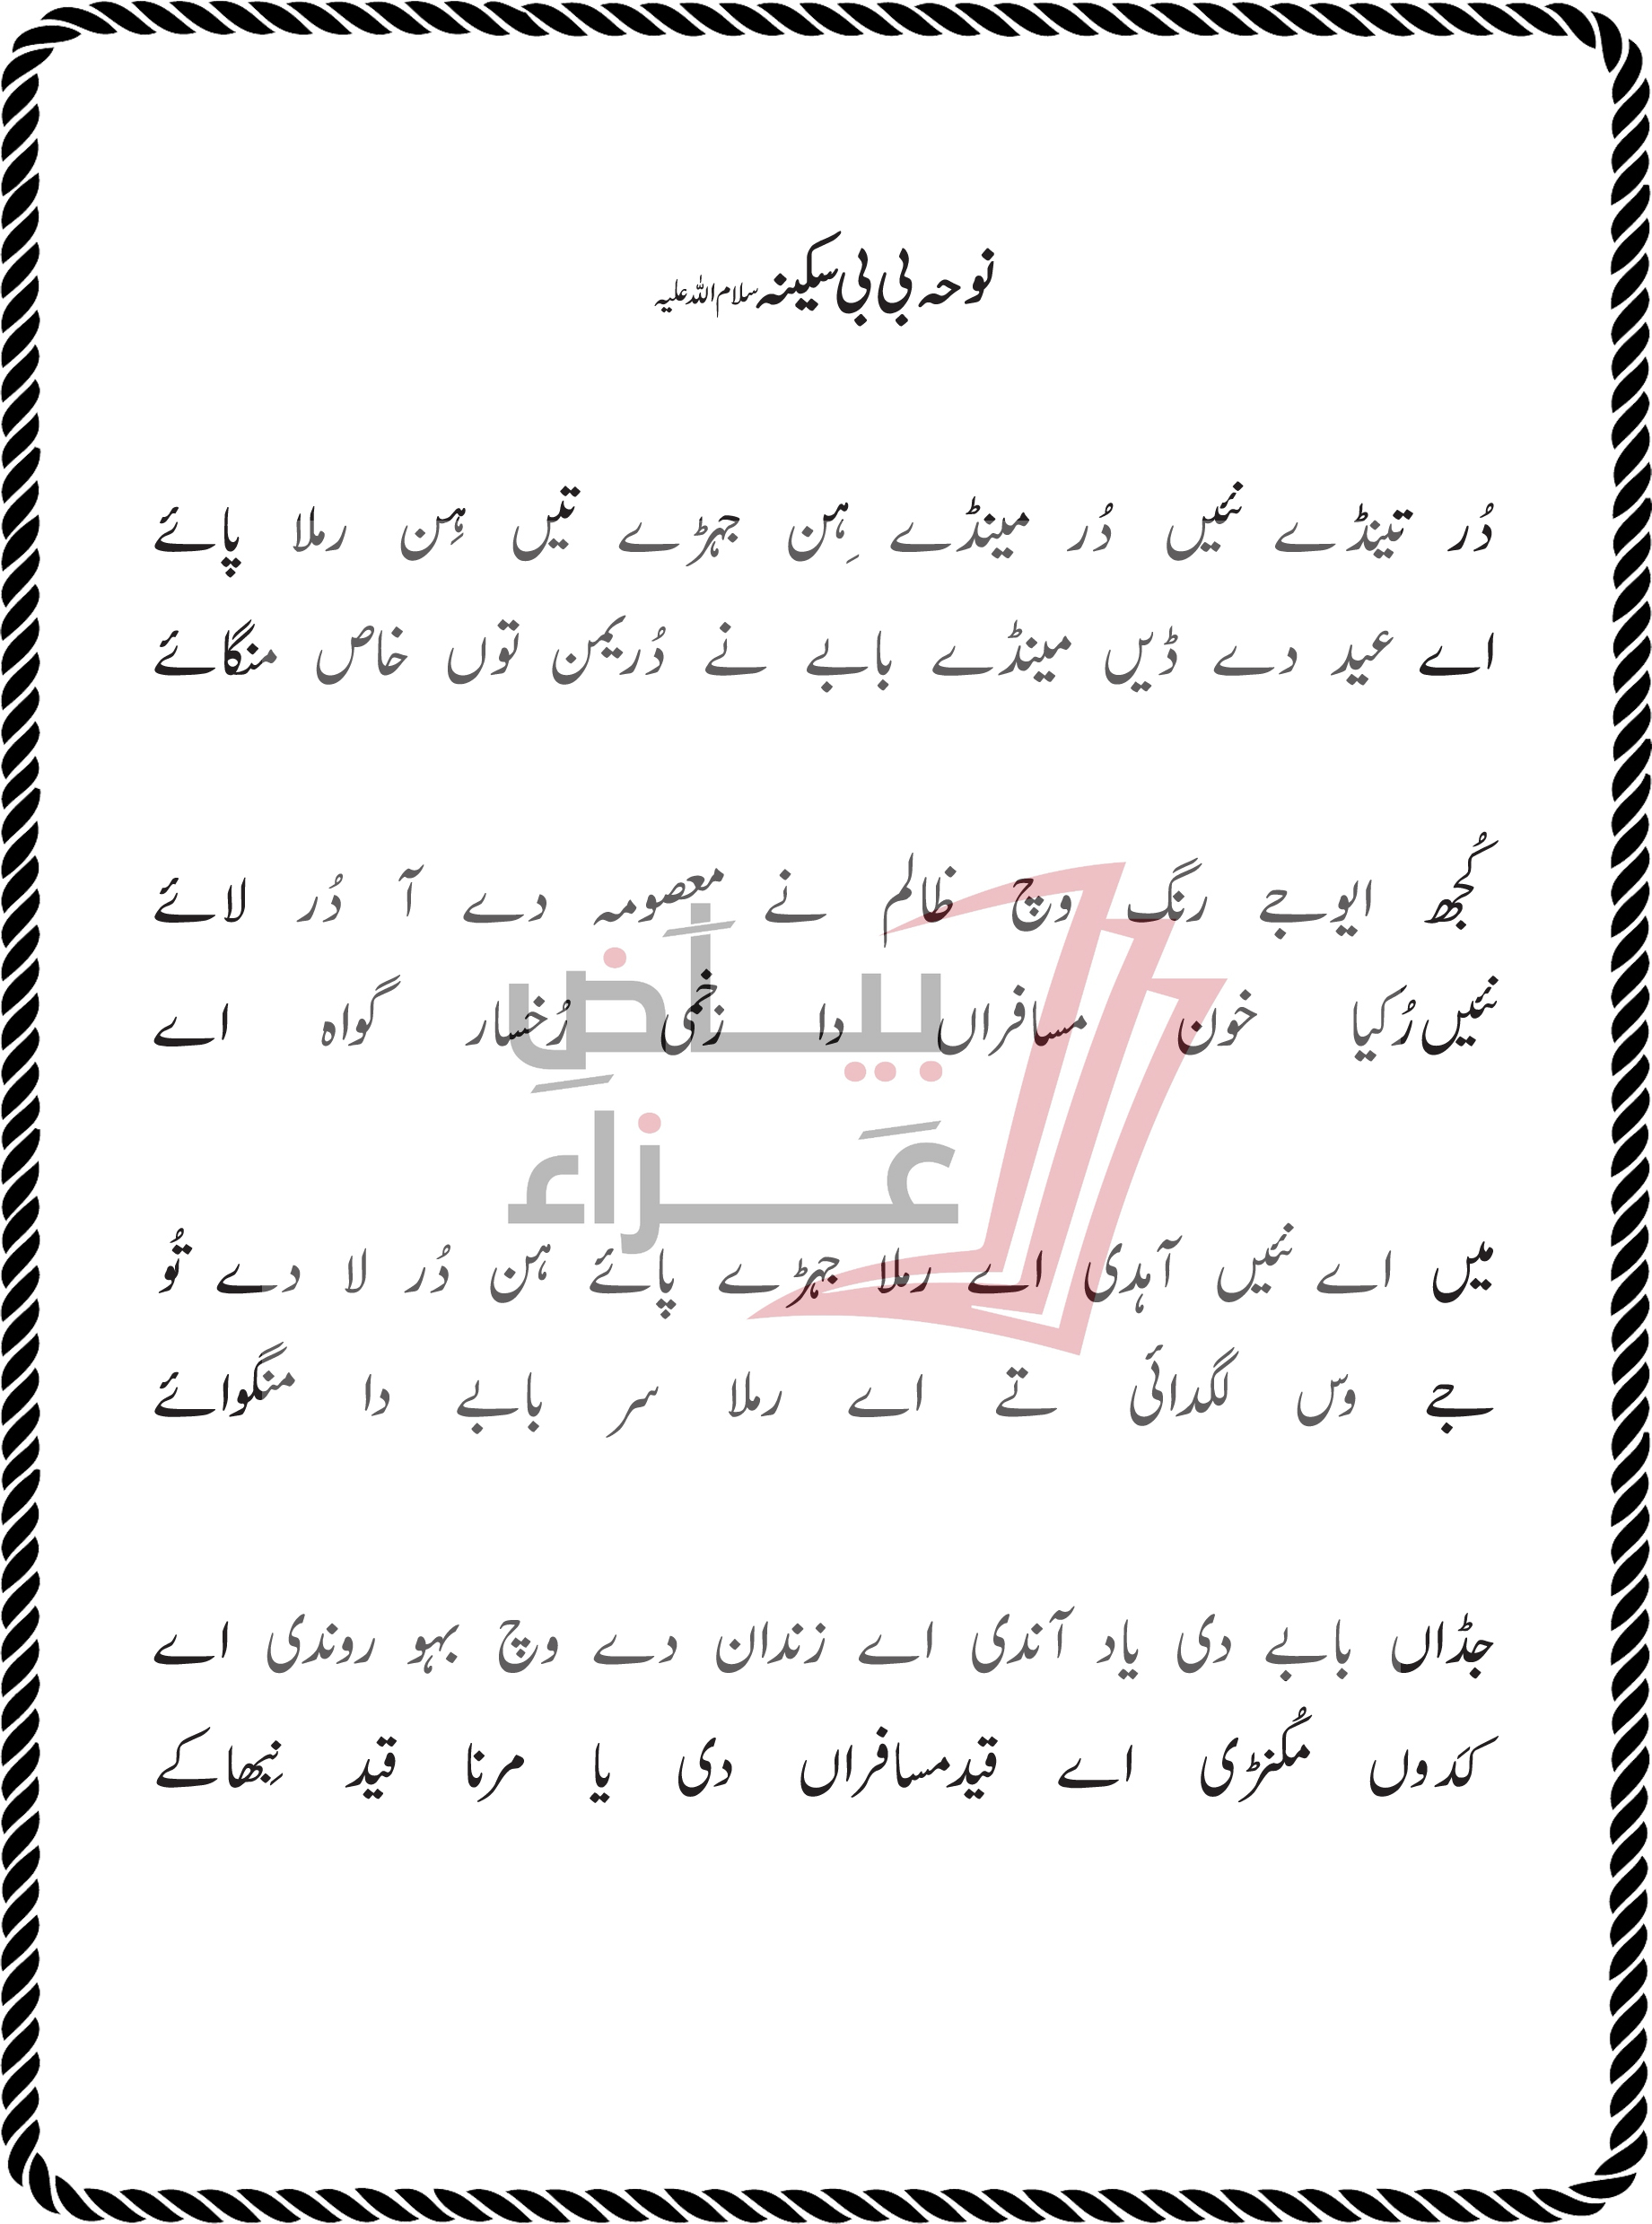 نوحہ بی بی سکینہ سلام اللہ علیہ
دُر تینڈے نئیں دُر مینڈے ہِن جہڑے تیں ہِن رملا پائے
اے عید دے ڈیں مینڈے بابے نے دُریمن توں خاص منگائے
کُجھ ایوجے رنگ وچ ظالم نے معصومہ دے آ دُر لائے
نئیں رُکیا خون مسافراں دا زخمی رُخسار گواہ اے
میں اے نئیں آہدی اے رملا جہڑے پائے ہن دُر لا دے تُو
جے وس لگدائی تے اے رملا سر بابے دا منگوائے
جڈاں بابے دی یاد آندی اے زندان دے وچ بہو روندی اے
کدَوں مُکنڑی اے قیدمسافراں دی یا مرنا قید نِبھاکے
بیاضِ
عَزاء